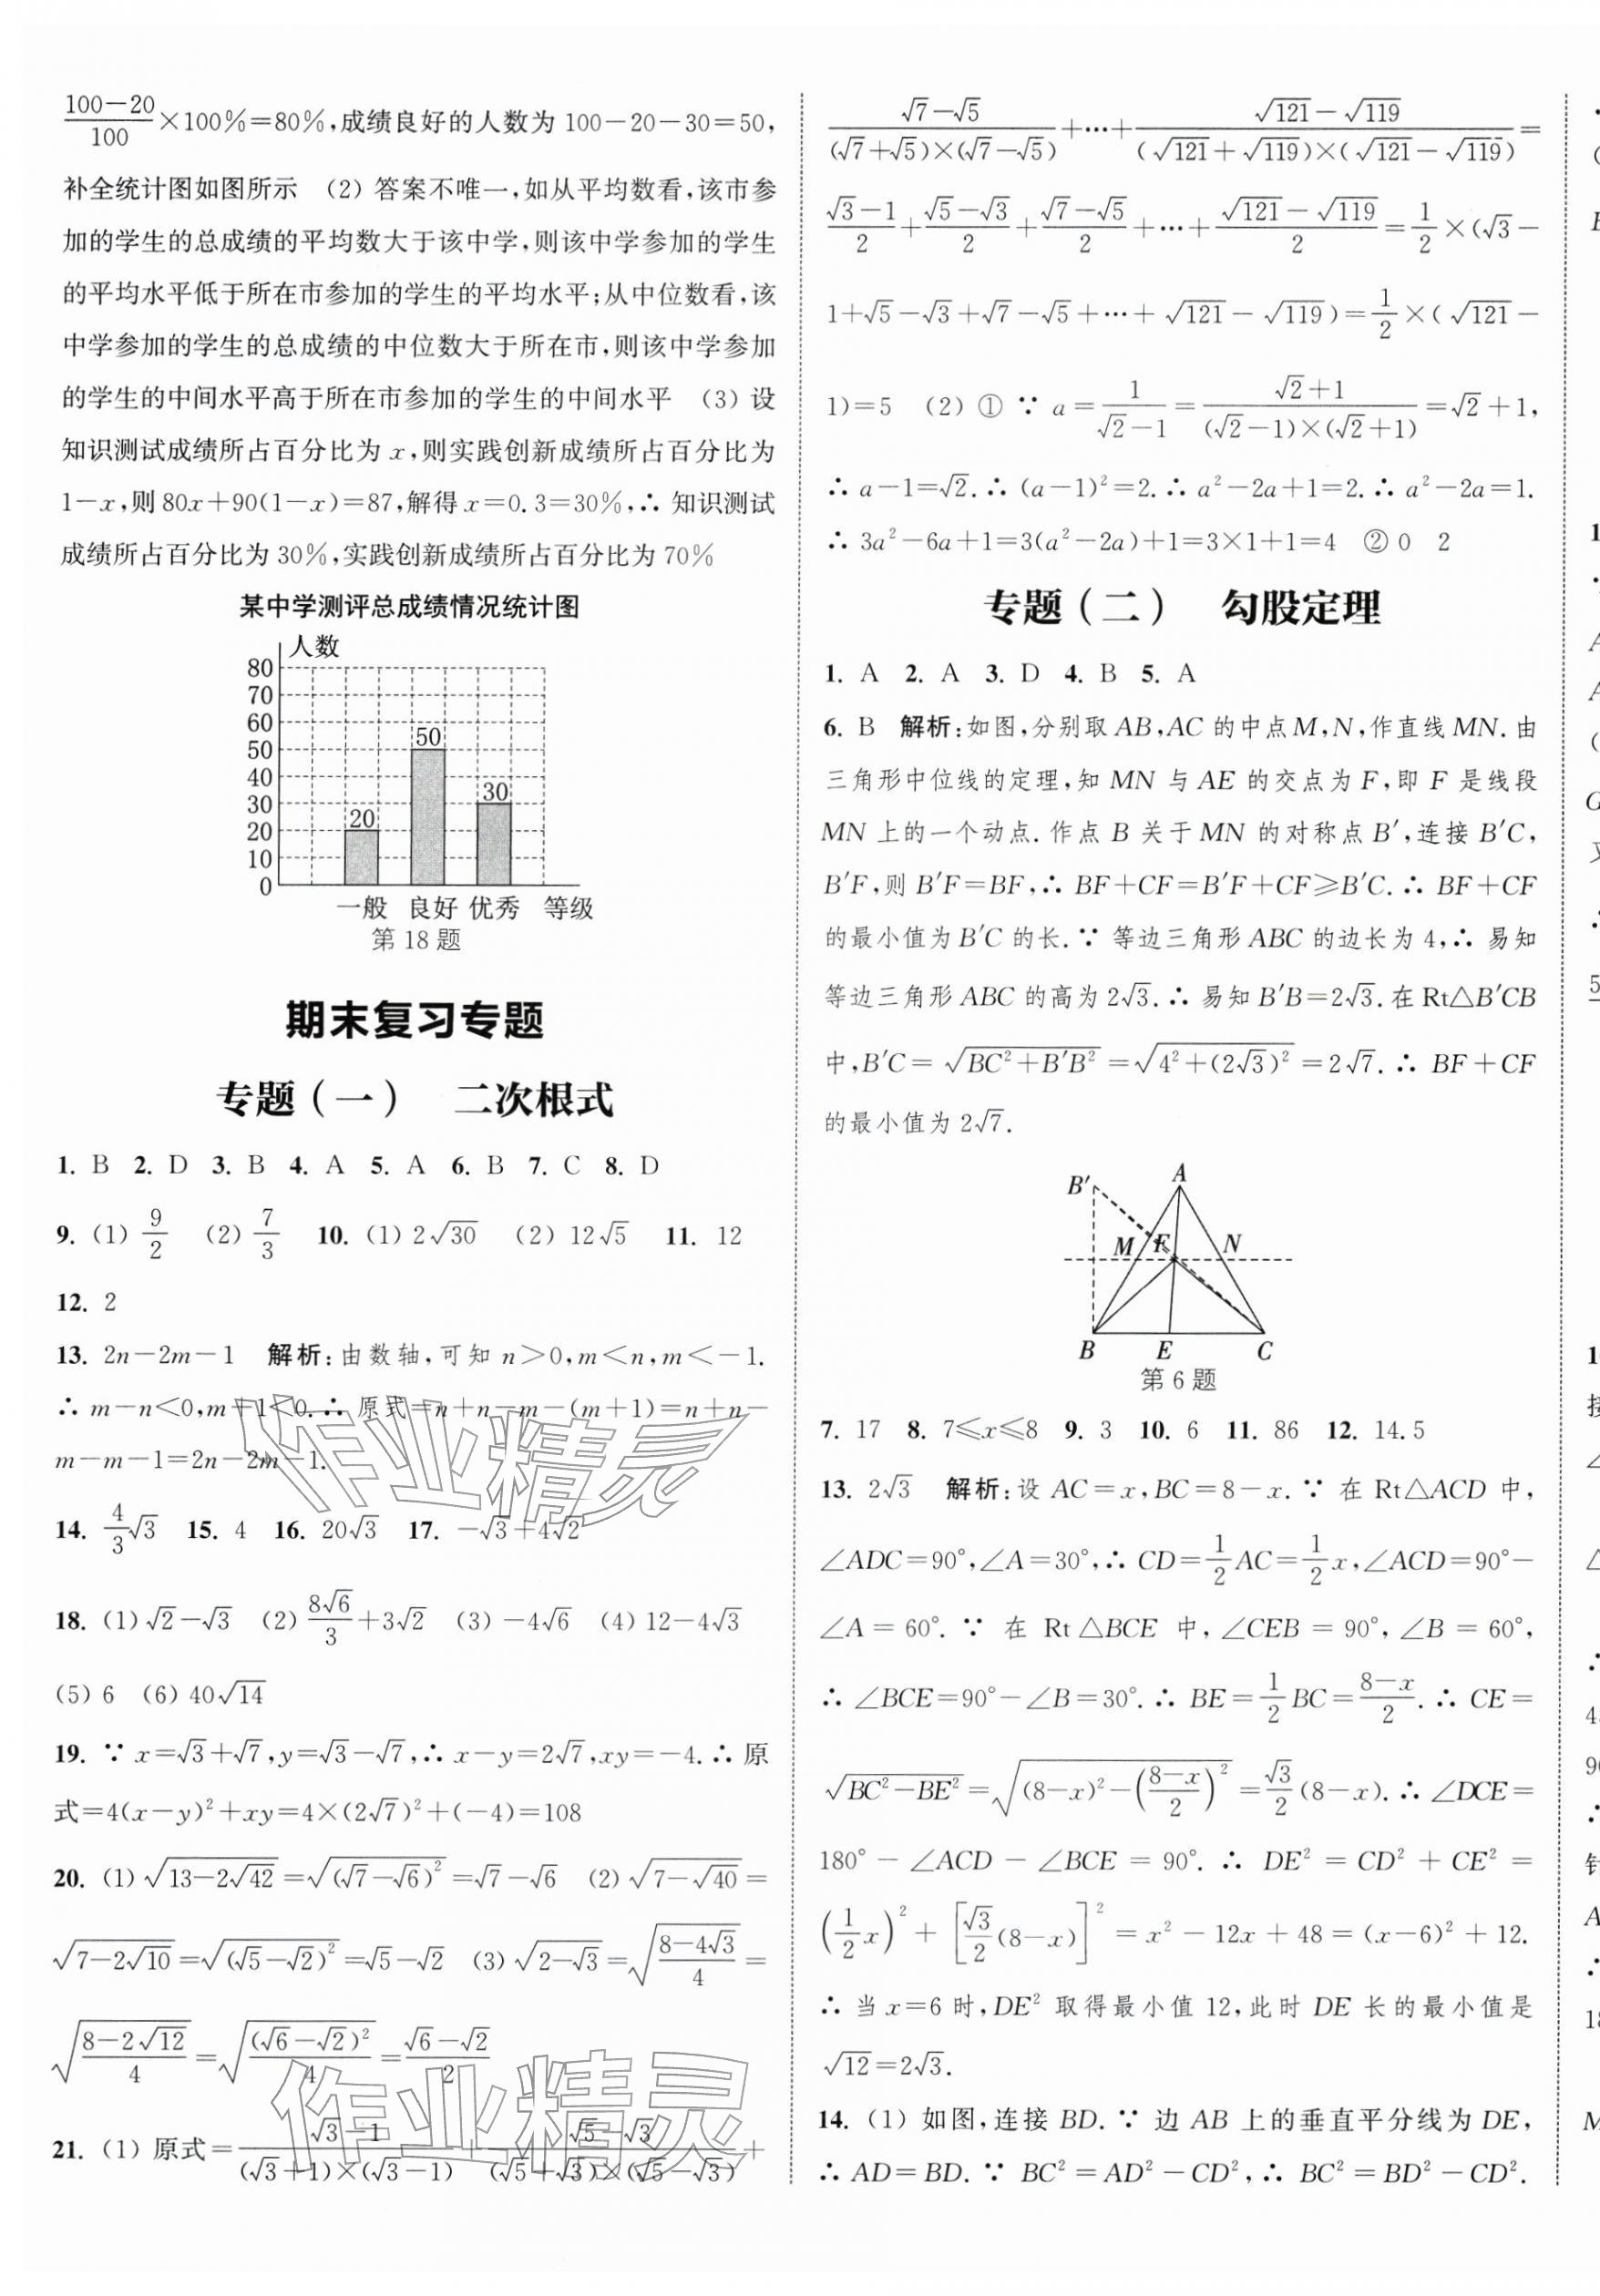 (100-20)/100×100%=80%,成绩良好的人数为 100-20-30=50,
补全统计图如图所示 (2) 答案不唯一,如从平均数看,该市参
加的学生的总成绩的平均数大于该中学,则该中学参加的学生
的平均水平低于所在市参加的学生的平均水平;从中位数看,该
中学参加的学生的总成绩的中位数大于所在市,则该中学参加
的学生的中间水平高于所在市参加的学生的中间水平 (3) 设
知识测试成绩所占百分比为 x,则实践创新成绩所占百分比为
1-x,则 80x+90(1-x)=87,解得 x=0.3=30%,∴ 知识测试
成绩所占百分比为 30%,实践创新成绩所占百分比为 70%
某中学测评总成绩情况统计图
人数
80
70
60
50
40
30
20
10
0
20
50
30
一般 良好 优秀 等级
第 18 题
期末复习专题
专题(一) 二次根式
1. B 2. D 3. B 4. A 5. A 6. B 7. C 8. D
9. (1) 9/2 (2) 7/3 10. (1) 2√30 (2) 12√5 11. 12
12. 2
13. 2n-2m-1 解析:由数轴,可知 n>0,m<n,m<-1.
∴ m-n<0,m+1<0.∴ 原式=n+n-m-(m+1)=n+n-
m-m-1=2n-2m-1.
14. 4/3√3 15. 4 16. 20√3 17. -√3+4√2
18. (1) √2-√3 (2) 8√6/3+3√2 (3) -4√6 (4) 12-4√3
(5) 6 (6) 40√14
19. ∵ x=√3+√7,y=√3-√7,∴ x-y=2√7,xy=-4.∴ 原
式=4(x-y)²+xy=4×(2√7)²+(-4)=108
20. (1) √(13-2√42)=√((√7-√6)²)=√7-√6 (2) √(7-√40)=
√(7-2√10)=√((√5-√2)²)=√5-√2 (3) √(2-√3)=√((8-4√3)/4)=
√((8-2√12)/4)=√((√6-√2)²/4)=(√6-√2)/2
21. (1) 原式=(√3-1)/((√3+1)×(√3-1))+(√5-√3)/((√5+√3)×(√5-√3))+
(√7-√5)/((√7+√5)×(√7-√5))+…+(√121-√119)/((√121+√119)×(√121-√119))=
(√3-1)/2+(√5-√3)/2+(√7-√5)/2+…+(√121-√119)/2=1/2×(√3-
1+√5-√3+√7-√5+…+√121-√119)=1/2×(√121-
1)=5 (2) ① ∵ a=1/(√2-1)=(√2+1)/((√2-1)×(√2+1))=√2+1,
∴ a-1=√2.∴ (a-1)²=2.∴ a²-2a+1=2.∴ a²-2a=1.
∴ 3a²-6a+1=3(a²-2a)+1=3×1+1=4 ② 0 2
专题(二) 勾股定理
1. A 2. A 3. D 4. B 5. A
6. B 解析:如图,分别取 AB,AC 的中点 M,N,作直线 MN.由
三角形中位线的定理,知 MN 与 AE 的交点为 F,即 F 是线段
MN 上的一个动点.作点 B 关于 MN 的对称点 B′,连接 B′C,
B′F,则 B′F=BF,∴ BF+CF=B′F+CF≥B′C.∴ BF+CF
的最小值为 B′C 的长.∵ 等边三角形 ABC 的边长为 4,∴ 易知
等边三角形 ABC 的高为 2√3.∴ 易知 B′B=2√3.在 Rt△B′CB
中,B′C=√(BC²+B′B²)=√(4²+(2√3)²)=2√7.∴ BF+CF
的最小值为 2√7.
B′ A
M F N
B E C
第 6 题
7. 17 8. 7≤x≤8 9. 3 10. 6 11. 86 12. 14.5
13. 2√3 解析:设 AC=x,BC=8-x.∵ 在 Rt△ACD 中,
∠ADC=90°,∠A=30°,∴ CD=1/2AC=1/2x,∠ACD=90°-
∠A=60°.∵ 在 Rt△BCE 中,∠CEB=90°,∠B=60°,
∴ ∠BCE=90°-∠B=30°.∴ BE=1/2BC=(8-x)/2.∴ CE=
√(BC²-BE²)=√((8-x)²-((8-x)/2)²)=√3/2(8-x).∴ ∠DCE=
180°-∠ACD-∠BCE=90°.∴ DE²=CD²+CE²=
(1/2x)²+[√3/2(8-x)]²=x²-12x+48=(x-6)²+12.
∴ 当 x=6 时,DE² 取得最小值 12,此时 DE 长的最小值是
√12=2√3.
14. (1) 如图,连接 BD.∵ 边 AB 上的垂直平分线为 DE,
∴ AD=BD.∵ BC²=AD²-CD²,∴ BC²=BD²-CD².
作业精灵
作业精灵